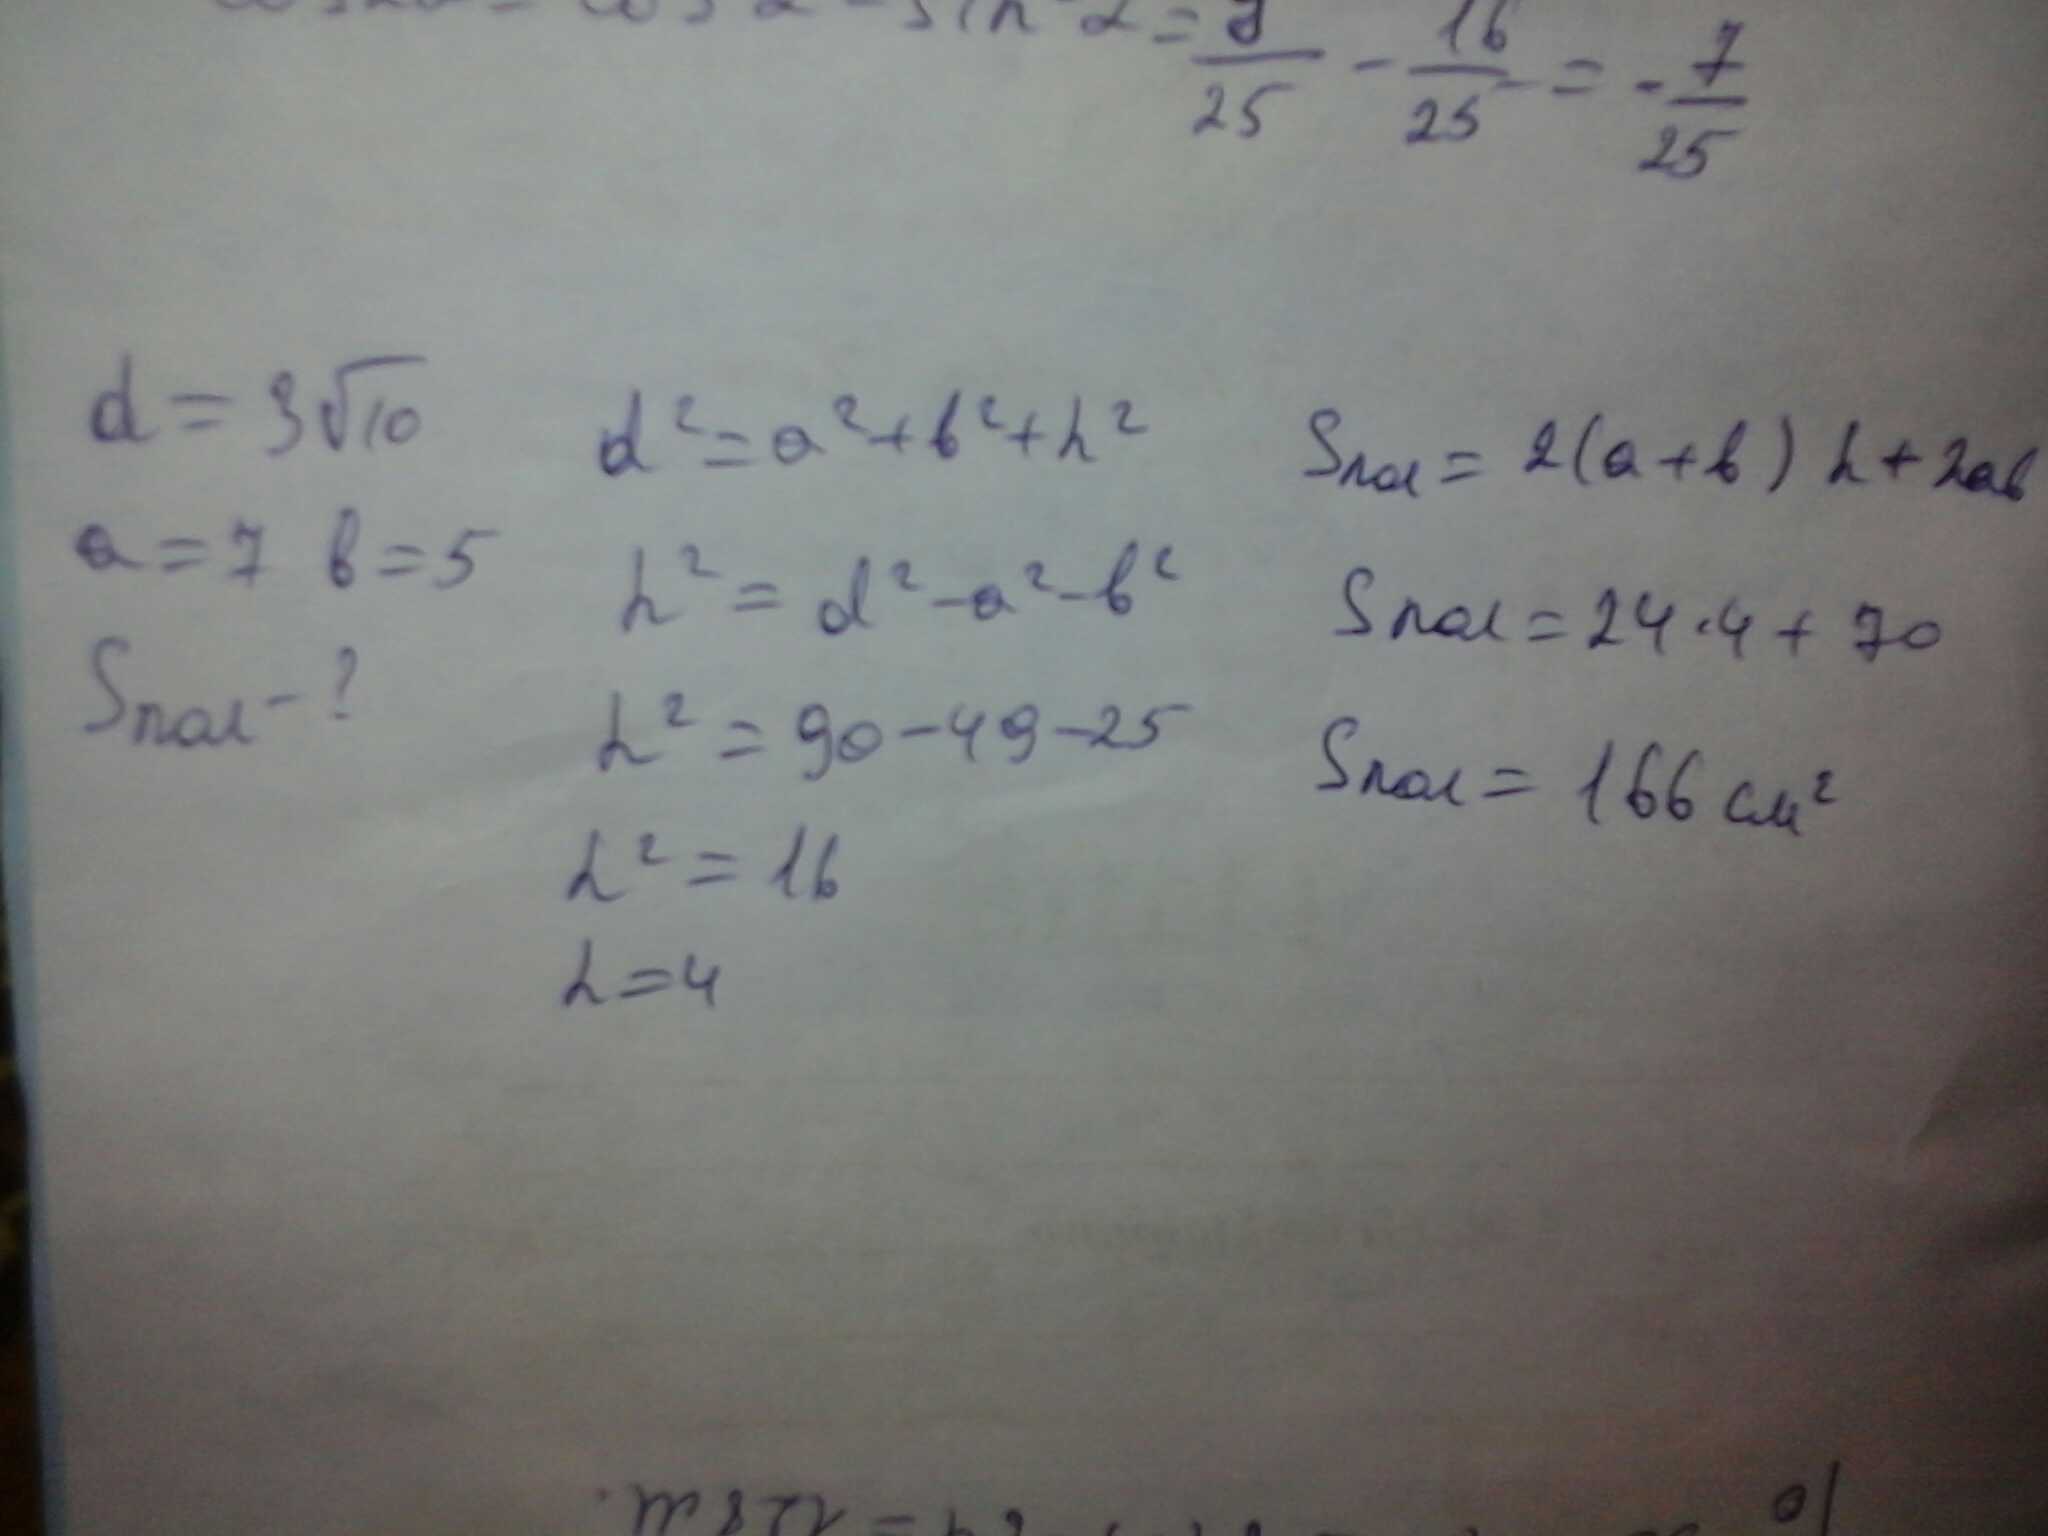 cos2α = cos²α - sin²α = 9/25 - 16/25 = - 7/25
d = 3√10
a = 7 b = 5
Sпол - ?
d² = a² + b² + h²
h² = d² - a² - b²
h² = 90 - 49 - 25
h² = 16
h = 4
Sпол = 2(a + b) h + 2ab
Sпол = 24 · 4 + 70
Sпол = 166 см²